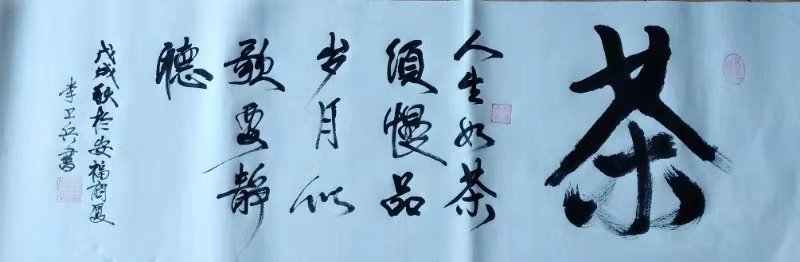 茶
人生如茶
须慢品
岁月似
歌要静
聽
戊戌秋於安福商夏
李卫兵書